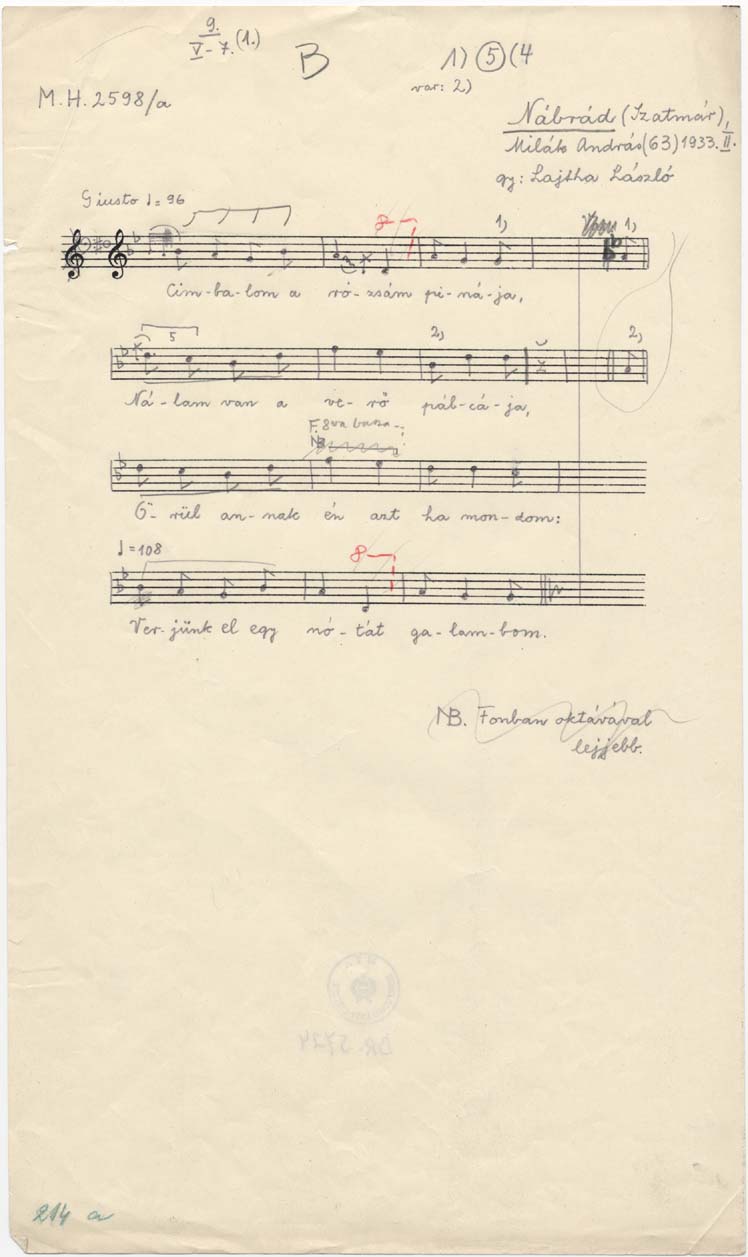 9.
V-7. (1.)
B
1) 5 (4
var: 2)
M.H. 2598/a
Nábrád (Szatmár),
András (63) 1933. II.
gy: Lajtha László
Giusto ♩= 96
8
1)
1)
Cim-ba-lom a ró-zsám pi-ná-ja,
5
2)
2)
Ná-lam van a ve-rő pál-cá-ja,
F. 8va bassa
NB
Ö-rül an-nak én azt ha mon-dom:
♩=108
8
Ver-jünk el egy nó-tát ga-lam-bom.
NB. Fonban oktávával
lejjebb.
DR. 5724
214 a